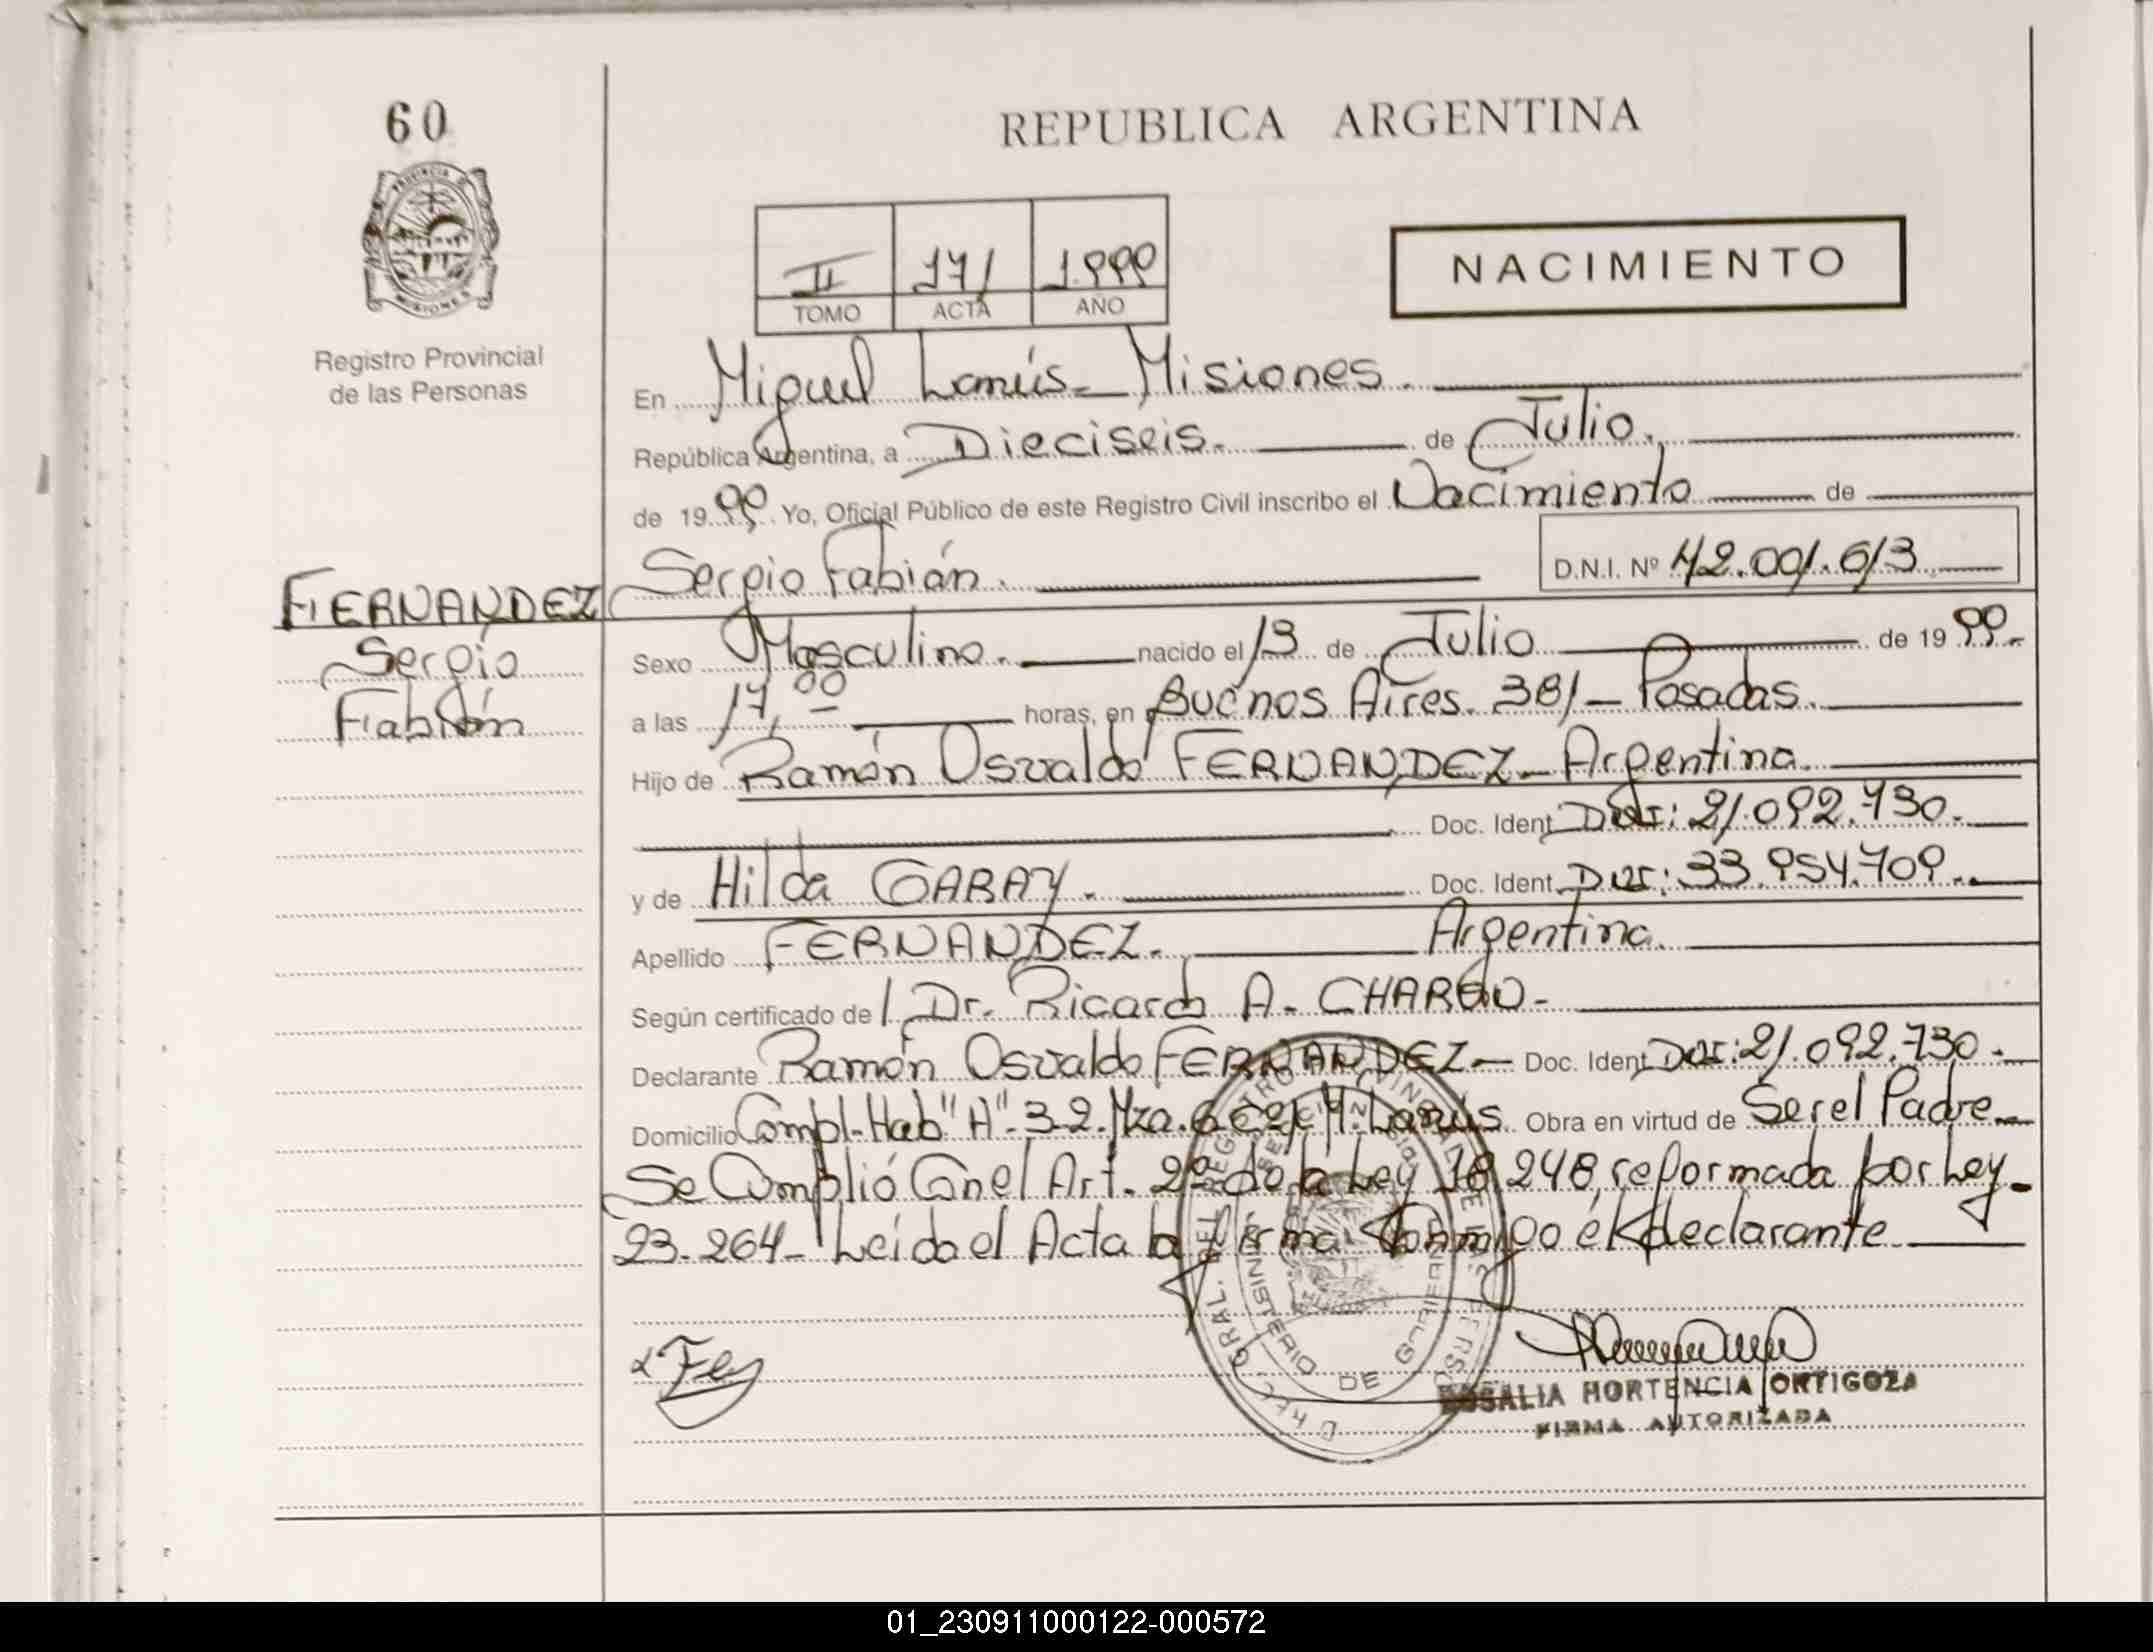 60
REPUBLICA ARGENTINA
NACIMIENTO
II 171 1.999
TOMO ACTA AÑO
Registro Provincial
de las Personas
En Miguel Lanús - Misiones.
República Argentina, a Dieciseis. de Julio.
de 1999. Yo, Oficial Público de este Registro Civil inscribo el Nacimiento de
Sergio Fabián. D.N.I. Nº 42.001.613
FERNANDEZ
Sergio
Fabián
Sexo Masculino. nacido el 13 de Julio de 1999.
a las 17,00 horas, en Buenos Aires. 381 - Posadas.
Hijo de Ramón Osvaldo FERNANDEZ - Argentina.
Doc. Ident. DNI: 21.092.730.
y de Hilda GARAY. Doc. Ident. DNI: 33.954.709.
Apellido FERNANDEZ. Argentina.
Según certificado de Dr. Ricardo A.
Declarante Ramón Osvaldo FERNANDEZ - Doc. Ident. DNI: 21.092.730.
Domicilio Compl. Hab "A" - 32. Mza. M. Lanús Obra en virtud de Ser el Padre
Se Cumplió Con el Art. 2º de la Ley 18.248, reformada por Ley
23.264 - Leído el Acta la firma Conmigo el declarante
ROSALIA HORTENCIA ORTIGOZA
FIRMA AUTORIZADA
MINISTERIO DE GOBIERNO
01_230911000122-000572